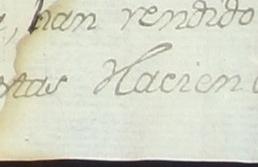 , han rendido
tas Hacien